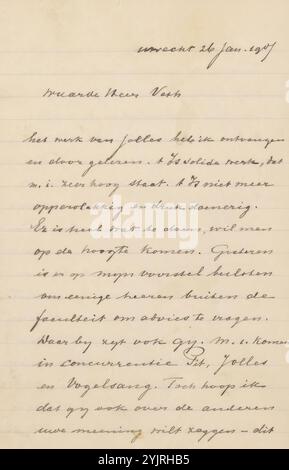 Utrecht 26 Jan. 1907
Waarde Heer Veth
Het werk van Jolles heb ik ontvangen
en door gelezen. 't Is solide werk, dat
m.i. zeer hoog staat. 't Is niet meer
oppervlakkig en
Er is heel wat te doen, wil men
op de hoogte komen. Gisteren
is er op mijn voorstel besloten
om eenige heeren buiten de
faculteit om advies te vragen.
Daarbij zijt ook gij. M.i. komen
in concurrentie Pit, Jolles
en Vogelsang. Toch hoop ik
dat gij ook over de anderen
uwe meening wilt zeggen – dit
alamy
Image ID: 2YJRHB5
www.alamy.com